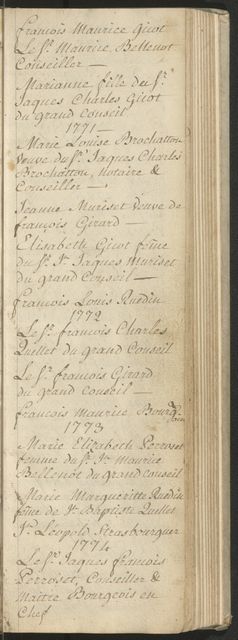 François Maurice Gicot
Le Sr. Maurice Bellenot
Conseiller —
Marianne fille du Sr.
Jaques Charles Gicot
du grand Conseil
1771 —
Marie Louise Brochatton
veuve du Sr. Jaques Charles
Brochatton, notaire &
Conseiller —
Jeanne Muriset veuve de
François Girard —
Elisabeth Gicot fême
du Sr. Jn. Jaques Muriset
du grand Conseil —
François Louis Ruedin
1772
Le Sr. François Charles
Quellet du grand Conseil
Le Sr. François Girard
du grand Conseil —
François Maurice
1773
Marie Elizabeth Perroset
femme du Sr. Jn. Maurice
Bellenot du grand Conseil
Marie Margueritte Ruedin
fême de Jn. Baptiste Quellet
Jn. Léopold Strasbourguer
1774
Le Sr. Jaques François
Perroset, Conseiller &
Maitre Bourgeois en
Chef